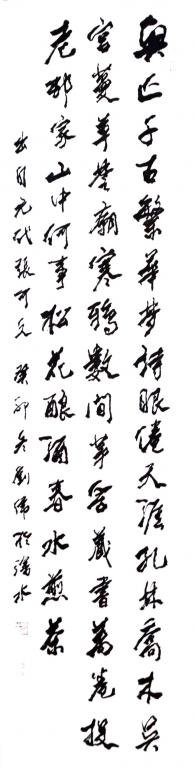 興亡千古繁華梦詩眼倦天涯孔林喬木吴
宫蔓草楚廟寒鴉數间茅舍藏書萬卷投
老邨家山中何事松花酿酒春水煎茶
出自元代張可久 癸卯冬劉偉於水